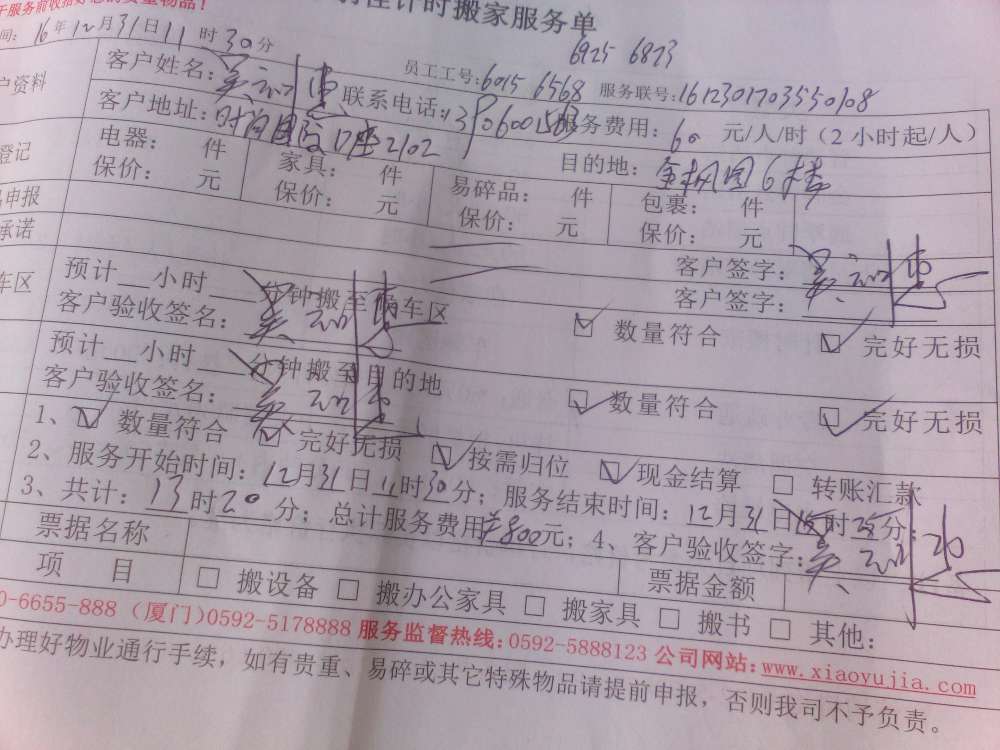 计时搬家服务单
间: 16年12月31日11时30分
6925 6873
员工工号: 6015 6568 服务联号: 1612301703550108
户资料 客户姓名: 联系电话:
客户地址: 座2102 服务费用: 60 元/人/时(2小时起/人)
目的地: 金枫园6楼
登记 电器: 件 家具: 件 易碎品: 件 包裹: 件
保价: 元 保价: 元 保价: 元 保价: 元
申报 客户签字:
承诺 客户签字:
车区 预计__小时__分钟搬至 车区
客户验收签名: ☑ 数量符合 ☑ 完好无损
预计__小时__分钟搬至目的地
客户验收签名: ☑ 数量符合 ☑ 完好无损
1、☑ 数量符合 ☑ 完好无损 ☑ 按需归位 ☑ 现金结算 □ 转账汇款
2、服务开始时间: 12月31日11时30分; 服务结束时间: 12月31日 时 分;
3、共计: 13时20分; 总计服务费用¥800元; 4、客户验收签字:
票据名称 票据金额
项 目 □ 搬设备 □ 搬办公家具 □ 搬家具 □ 搬书 □ 其他:
0-6655-888 (厦门)0592-5178888 服务监督热线:0592-5888123 公司网站:www.xiaoyujia.com
办理好物业通行手续，如有贵重、易碎或其它特殊物品请提前申报，否则我司不予负责。